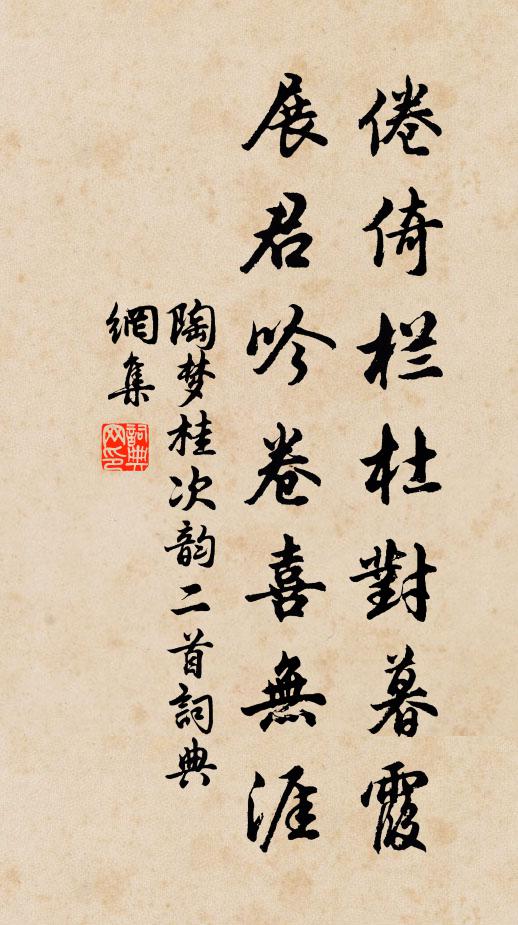 倦倚栏杜對暮霞
展君吟卷喜無涯
陶梦桂次韵二首詞典
網集
詞典
网印